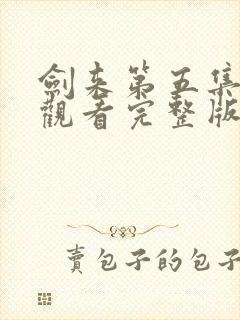 劍來第五集
觀看完整版
賣包子的包子